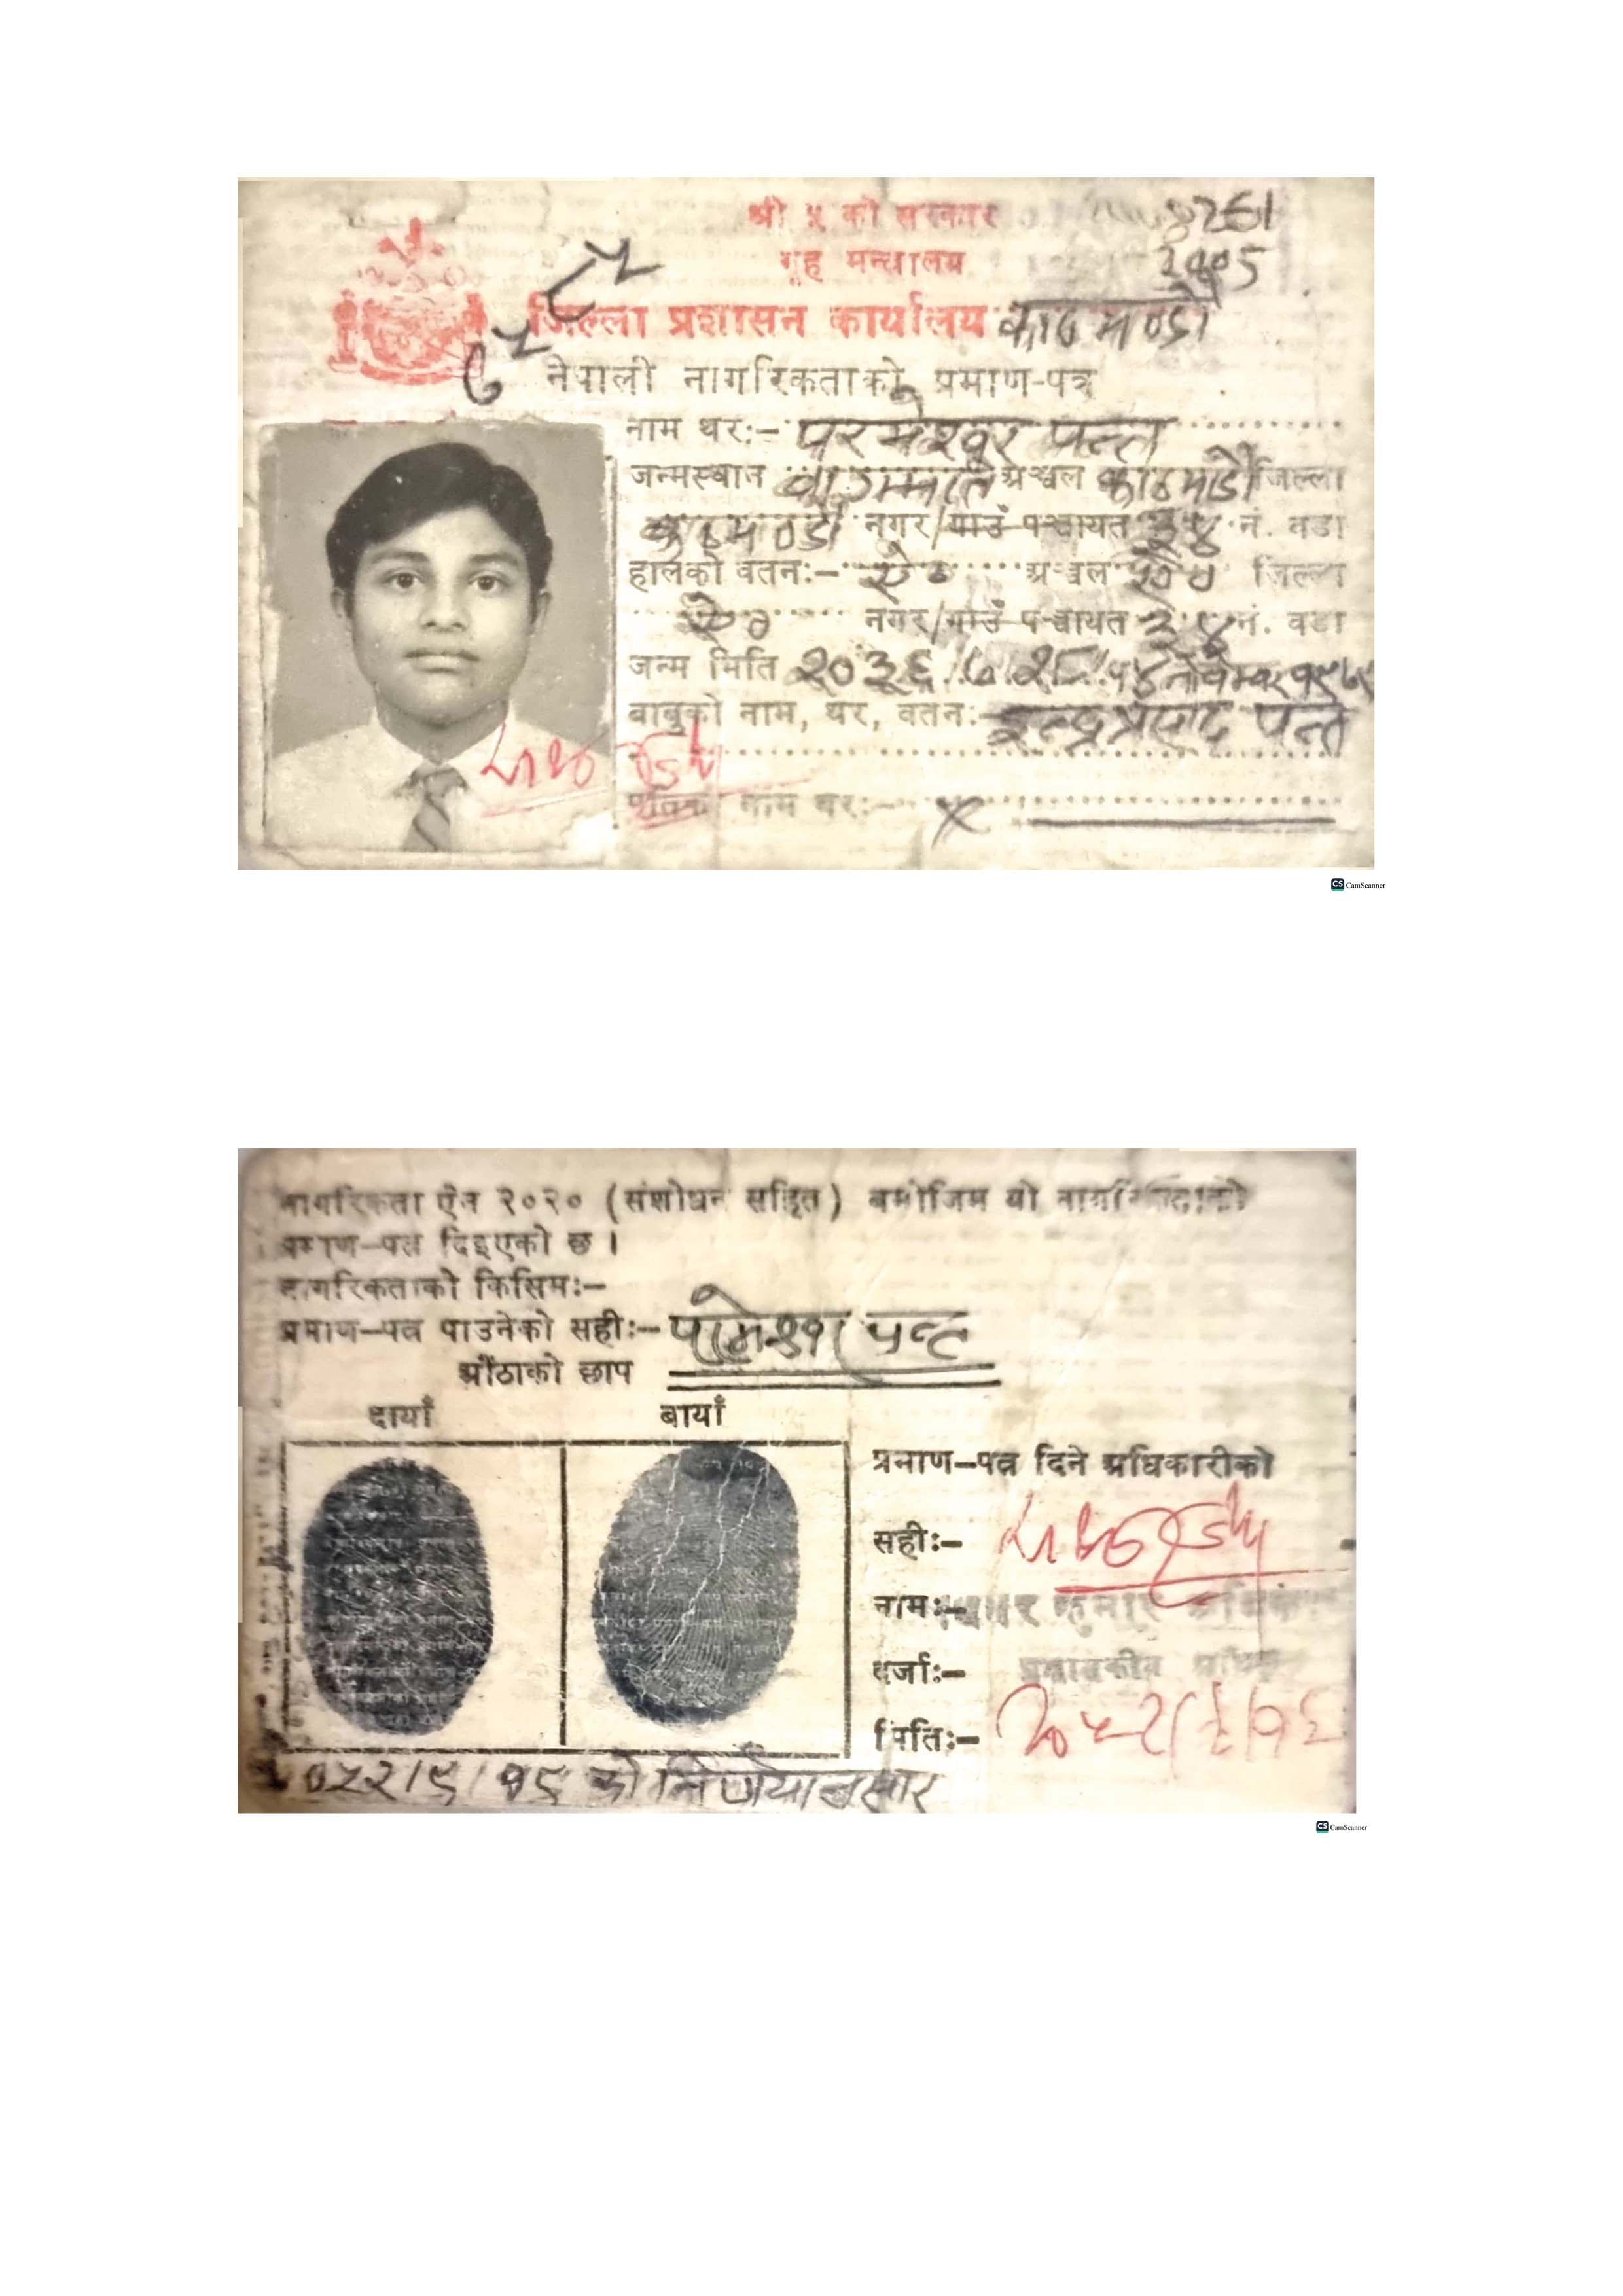 श्री ५ को सरकार
गृह मन्त्रालय
जिल्ला प्रशासन कार्यालय काठमाण्डौ
नेपाली नागरिकताको प्रमाण-पत्र
नाम थर:- परमेश्वर पन्त
जन्मस्थान वागमती अञ्चल काठमाडौं जिल्ला
काठमाण्डौ नगर/गाउं पञ्चायत ३४ नं. वडा
हालको वतन:- ऐ० अञ्चल ऐ० जिल्ला
ऐ० नगर/गाउं पञ्चायत ३४ नं. वडा
जन्म मिति २०३६/७/२८ १४ नोवेम्बर १९७९
बाबुको नाम, थर, वतन:- इन्द्र प्रसाद पन्त
पतिको नाम थर:- x
CS CamScanner
नागरिकता ऐन २०२० (संशोधन सहित) बमोजिम यो नागरिकताको
प्रमाण-पत्र दिइएको छ ।
नागरिकताको किसिम:-
प्रमाण-पत्र पाउनेको सही:- परमेश्वर पन्त
औंठाको छाप
दायाँ बायाँ
प्रमाण-पत्र दिने अधिकारीको
सही:-
नाम:- कुमार
दर्जा:-
मिति:-
०५२/९/१९ को निर्णयानुसार
CS CamScanner